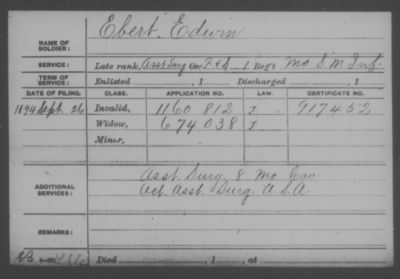 NAME OF SOLDIER: Ebert, Edwin
SERVICE: Late rank, Asst Surg Co. F & S, 1 Reg't Mo S. M. Inf.
TERM OF SERVICE: Enlisted , 1 Discharged , 1
DATE OF FILING. CLASS. APPLICATION NO. LAW. CERTIFICATE NO.
1894 Sept. 26 Invalid, 1160 812 J 917452
Widow, 674 038 J
Minor,
ADDITIONAL SERVICES: Asst. Surg. 8 Mo Cav
Act Asst. Surg. U.S.A.
REMARKS:
Died , 1 , at